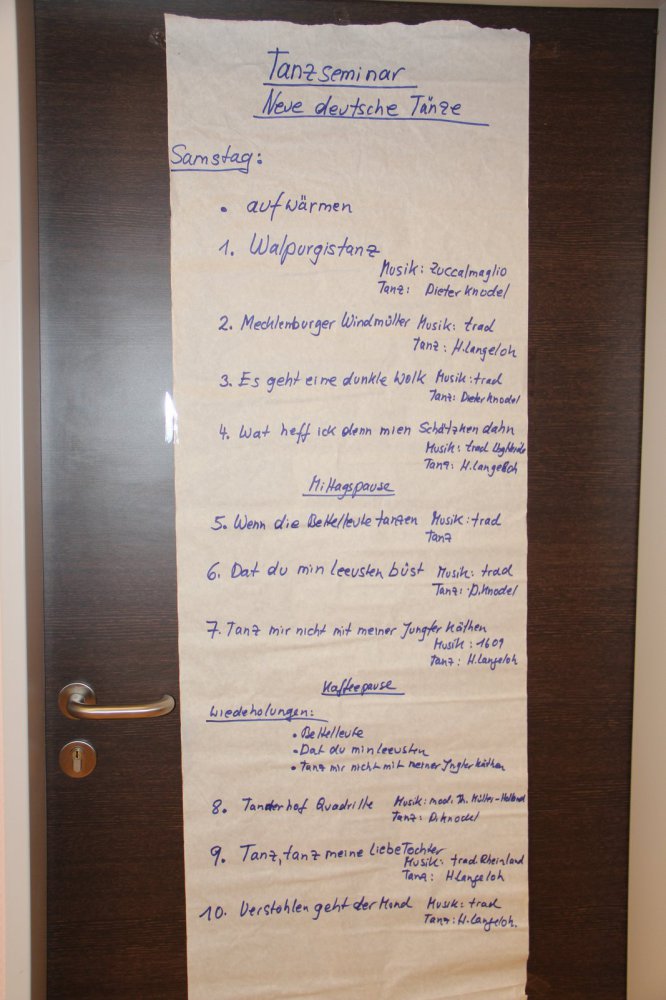 Tanzseminar
Neue deutsche Tänze
Samstag:
• aufwärmen
1. Walpurgistanz
Musik: Zuccalmaglio
Tanz: Dieter Knodel
2. Mecklenburger Windmüller Musik: trad
Tanz: H. Langeloh
3. Es geht eine dunkle Wolk Musik: trad
Tanz: Dieter Knodel
4. Wat heff ick denn mien Schätzken dahn
Musik: trad
Tanz: H. Langeloh
Mittagspause
5. Wenn die Bettelleute tanzen Musik: trad
Tanz
6. Dat du min leevsten büst Musik: trad
Tanz: D. Knodel
7. Tanz mir nicht mit meiner Jungfer Käthen
Musik: 1609
Tanz: H. Langeloh
Kaffeepause
Wiedeholungen:
• Bettelleute
• Dat du min leevsten
• Tanz mir nicht mit meiner Jngfer Käthen
8. Tanderhof Quadrille Musik: mod. Th. Müller-Holland
Tanz: D. Knodel
9. Tanz, tanz meine liebe Tochter
Musik: trad Rheinland
Tanz: H Langeloh
10. Verstohlen geht der Mond Musik: trad
Tanz: H. Langeloh.